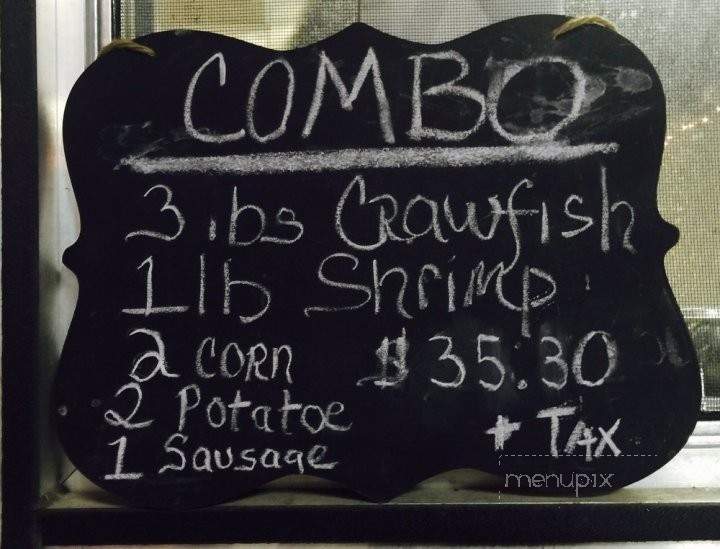 COMBO
3 lbs Crawfish
1 lb Shrimp
2 CORN $35.30
2 Potatoe + TAX
1 Sausage
menupix